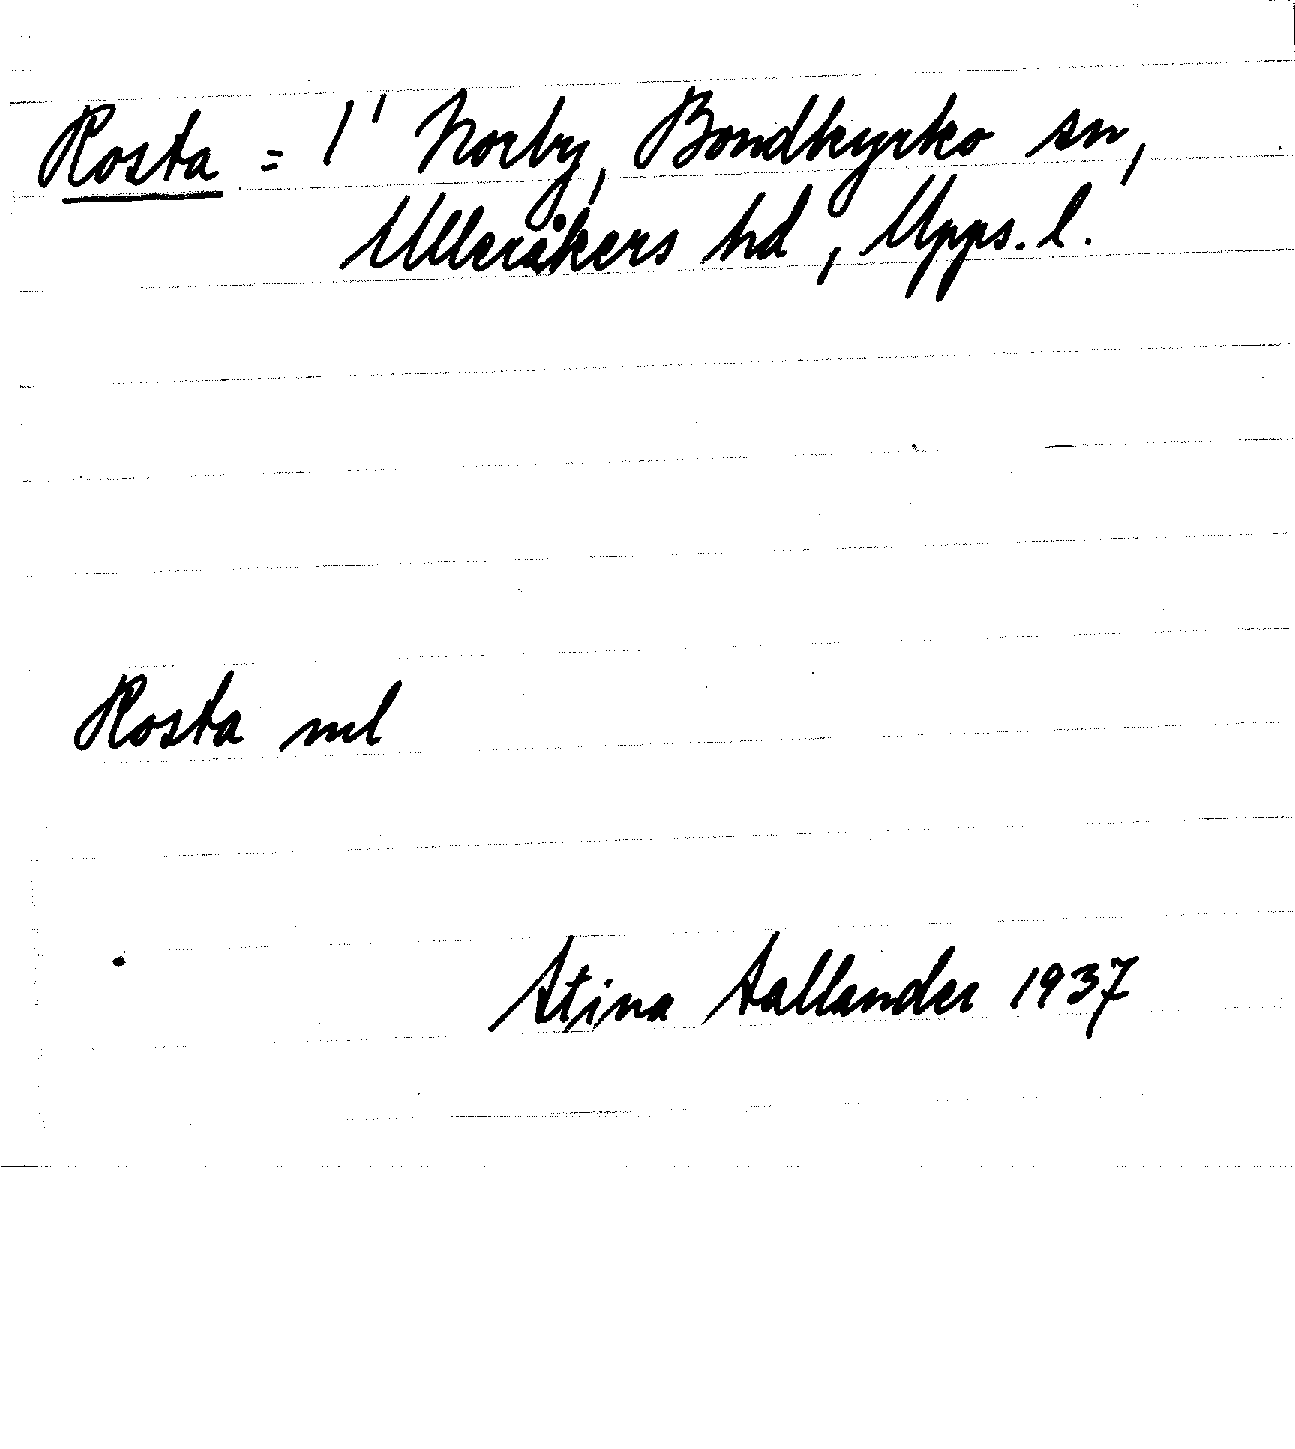 Rosta = 1¹ Norby, Bondkyrko sn,
Ulleråkers hd, Upps. l.
Rosta ml
Stina Sallander 1937